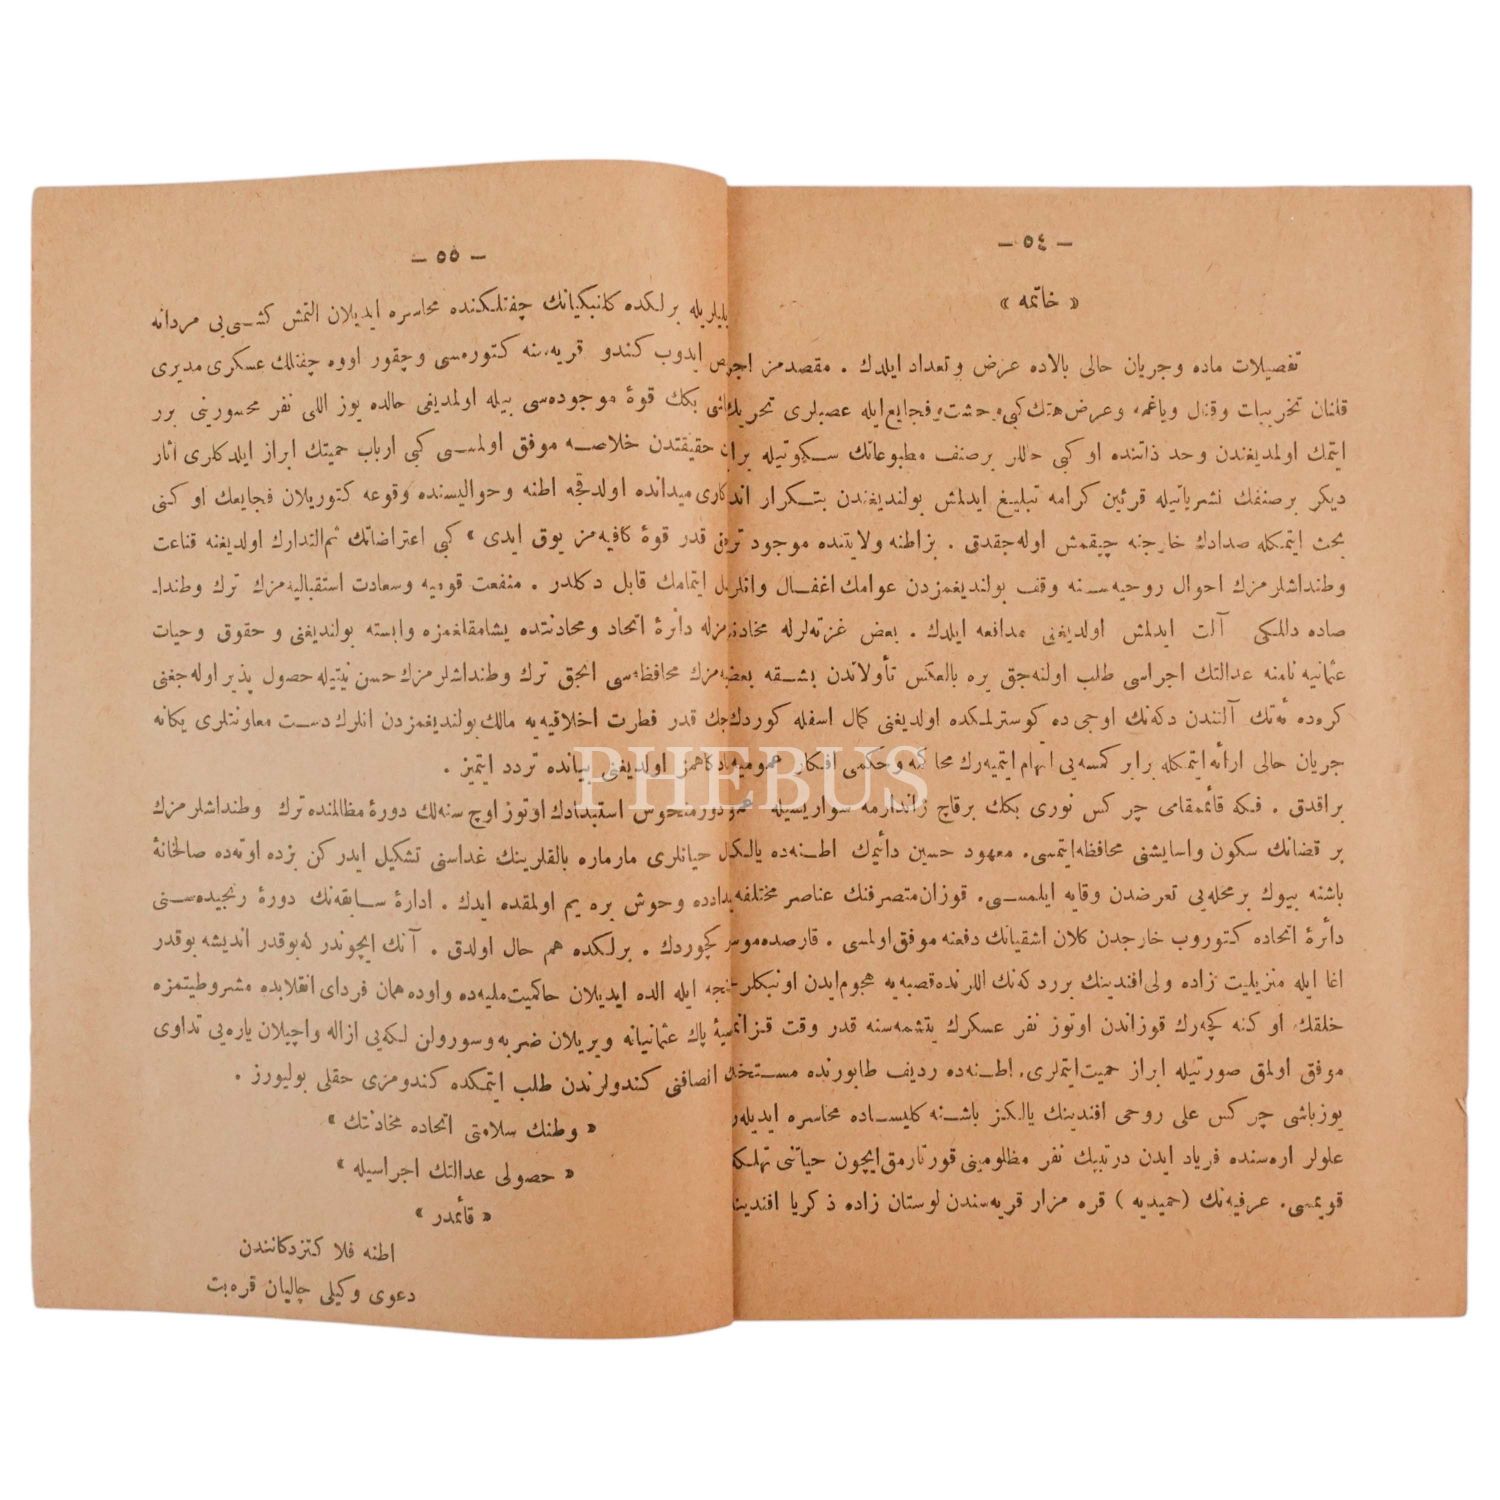 — ٥٤ —
« خاتمه »
تفصیلات ماده وجریان حالی بالاده عرض وتعداد ایلدك . مقصدمز اجر
قلنان تخریبات وقتل ویاغمه وعرض هتك کبی وحشت وفجایع ایله عصبلری تحریك
ایتمك اولمدیغندن وحد ذاتنده او کبی حاللر برصنف مطبوعاتك سکوتیله برا
دیکر برصنفك نشریاتیله قرئین کرامه تبلیغ ایدلمش بولندیغندن بتکرار اند
بحث ایتمکله صدادك خارجنه چیقمش اوله جقدق . بزاطنه ولایتنده موجود تر
وطنداشلرمزك احوال روحیه سنه وقف بولندیغمزدن عوامك اغفال وانلر
صاده دللکی آلت ایدلمش اولدیغنی مدافعه ایلدك . بعض غزته لرله مخادنه
عثمانیه نامنه عدالتك اجراسی طلب اولنه جق یره بالعکس تأولاتدن بشقه بعض
کره ده تهتك آلتندن دکنك اوجی ده کوسترلمکده اولدیغنی کمال اسفله کوردك
جریان حالی ارائه ایتمکله برابر کمسه یی اتهام ایتمیه رك محاکمه وحکمی افکار عمومیه
براقدق . فکه قائممقامی چرکس نوری بكك برقاچ ژاندارمه سواریسیله
بر قضانك سکون واسایشنی محافظه ایتمسی. معهود حسین دائیمك اطنه ده یالکز
باشنه بیوك بر محله یی تعرضدن وقایه ایلمسی. قوزان متصرفنك عناصر مختلفه
دائرهٔ اتحاده کتوروب خارجدن کلان اشقیانك دفعنه موفق اولمسی . قارصده موسی
اغا ایله منزیلیت زاده ولی افندینك بررد که نك اللرنده قصبه یه هجوم ایدن اونبکلر
خلقك او کنه کچه رك قوزاندن اوتوز نفر عسکرك یتشمه سنه قدر وقت قزانم
موفق اولمق صورتیله ابراز حمیت ایتملری. اطنه ده ردیف طابورنده مستخد
یوزباشی چرکس علی روحی افندینك یالکز باشنه کلیساده محاسره ایدیله ر
علولر اره سنده فریاد ایدن درتبیك نفر مظلومینی قورتارمق ایچون حیاتنی تهلکه
قویمسی. عرفیه نك (حمیدیه ) قره مزار قریه سندن لوستان زاده ذکریا افندینك
— ٥٥ —
برلکده کلنبکیانك چفتلکنده محاسره ایدیلان التمش کشی یی مردانه
ایدوب کندو قریه سنه کتوره سی وچقور اووه چفتلك عسکری مدیری
بكك قوهٔ موجوده سی بیله اولمدیغی حالده یوز اللی نفر محسورینی برر
حقیقتدن خلاصه موفق اولمسی کبی ارباب حمیتك ابراز ایلدکلری اثار
میدانده اولدقجه اطنه وحوالیسنده وقوعه کتوریلان فجایعك او کنی
قدر قوهٔ کافیه مز یوق ایدی » کبی اعتراضاتك ثم التدارك اولدیغنه قناعت
ایتمامك قابل دکلدر . منفعت قومیه وسعادت استقبالیه مزك ترك وطندا
مزله دائرهٔ اتحاد ومحادنتده یشامقلغمزه وابسته بولندیغنی و حقوق وحیات
مزك محافظه سی انجق ترك وطنداشلرمزك حسن نیتیله حصول پذیر اوله جغنی
قدر فطرت اخلاقیه یه مالك بولندیغمزدن انلرك دست معاونتلری یکانه
اولدیغنی بیانده تردد ایتمیز .
دورمنحوس استبدادك اوتوز اوچ سنه لك دورهٔ مظالمنده ترك وطنداشلرمزك
حیاتلری مارماره بالقلرینك غداسنی تشکیل ایدرکن بزده اوته ده صالخانهٔ
وحوش بره یم اولمقده ایدك . ادارهٔ سابقه نك دورهٔ رنجیده سنی
کچوردك . برلکده هم حال اولدق . آنك ایچوندر که بوقدر اندیشه بوقدر
ایله الده ایدیلان حاکمیت ملیه ده واوده همان فردای انقلابده مشروطیتمزه
پاك عثمانیانه ویریلان ضربه وسورولن لکه یی ازاله واچیلان یاره یی تداوی
انصافنی کندولرندن طلب ایتمکده کندومزی حقلی بولیورز .
« وطنك سلامتی اتحاده مخادنتك »
« حصولی عدالتك اجراسیله »
« قائمدر »
اطنه فلاکتزدکانندن
دعوی وکیلی چالیان قره بت
PHEBUS